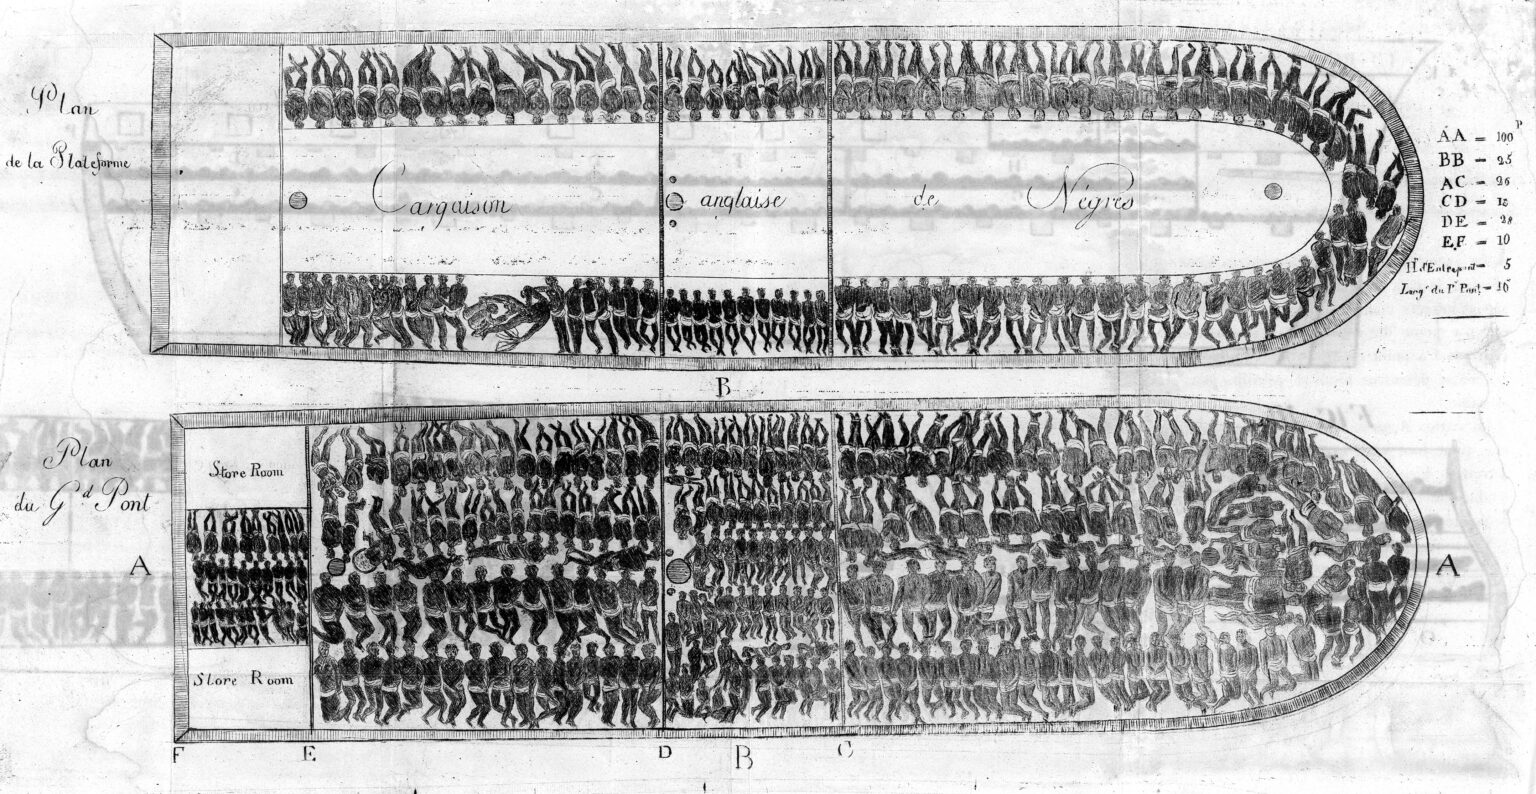 Plan
de la Plateforme
Cargaison anglaise de Négres
AA = 100 P
BB = 25
AC = 26
CD = 18
DE = 28
EF = 10
Hr. d'Entrepont = 5
Larg. du Pt. Pont = 16
B
Plan
du Gd Pont
Store Room
A
A
Store Room
F E D B C